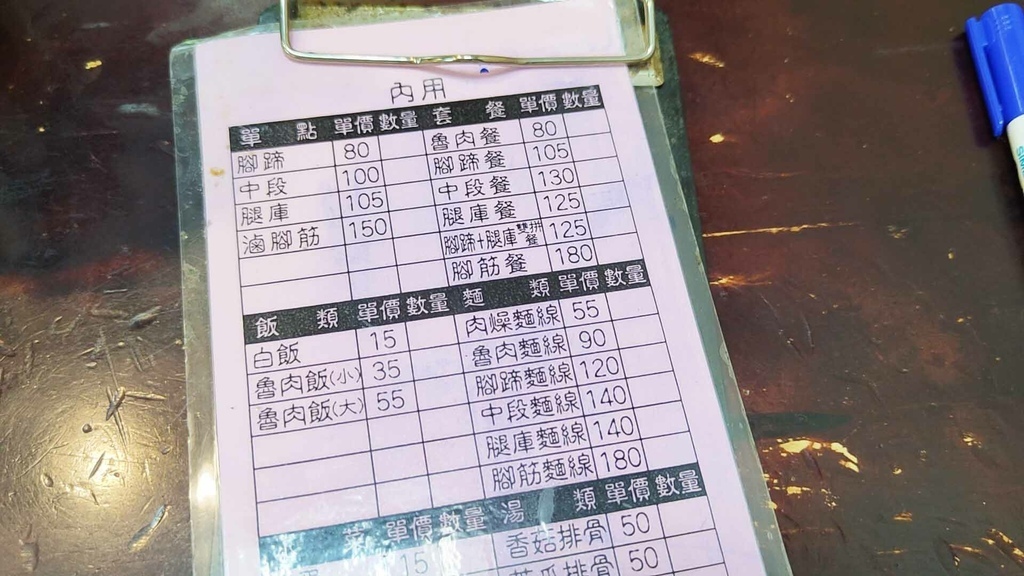 內用
單點 單價 數量 套餐 單價 數量
腳蹄 80 魯肉餐 80
中段 100 腳蹄餐 105
腿庫 105 中段餐 130
滷腳筋 150 腿庫餐 125
腳蹄+腿庫雙拼餐 125
腳筋餐 180
飯類 單價 數量 麵類 單價 數量
白飯 15 肉燥麵線 55
魯肉飯(小) 35 魯肉麵線 90
魯肉飯(大) 55 腳蹄麵線 120
中段麵線 140
腿庫麵線 140
腳筋麵線 180
單價 數量 湯類 單價 數量
15 香菇排骨 50
苦瓜排骨 50